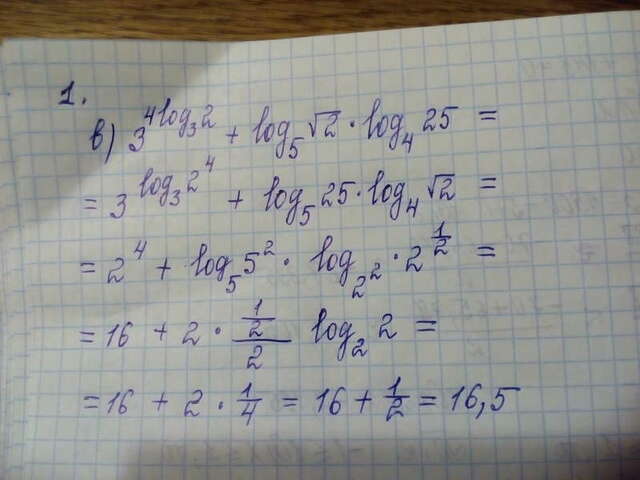 1.
в) 3^{4log_3 2} + log_5 √2 · log_4 25 =
= 3^{log_3 2^4} + log_5 25 · log_4 √2 =
= 2^4 + log_5 5^2 · log_{2^2} · 2^{1/2} =
= 16 + 2 · \frac{\frac{1}{2}}{2} log_2 2 =
= 16 + 2 · \frac{1}{4} = 16 + \frac{1}{2} = 16,5